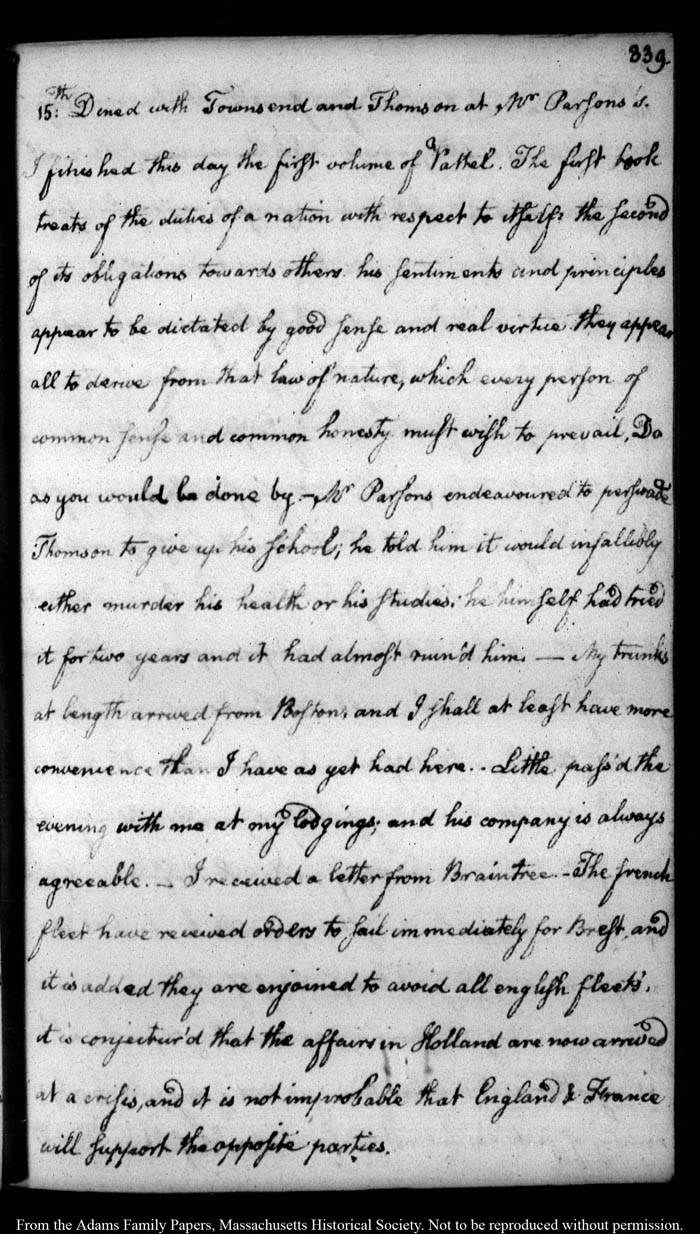 339.
15:th Dined with Townsend and Thomson at Mr Parsons's.
I finished this day the first volume of Vattel. The first book
treats of the duties of a nation with respect to itself: the second
of its obligations towards others. his sentiments and principles
appear to be dictated by good sense and real virtue. they appear
all to derive from that law of nature, which every person of
common sense and common honesty must wish to prevail, Do
as you would be done by. — Mr Parsons endeavoured to perswade
Thomson to give up his school; he told him it would infallibly
either murder his health or his studies: he himself had tried
it for two years and it had almost ruin'd him. — My trunks
at length arrived from Boston, and I shall at least have more
convenience than I have as yet had here. . Little pass'd the
evening with me at my lodgings; and his company is always
agreeable. — I received a letter from Braintree. — The french
fleet have received orders to sail immediately for Brest, and
it is added they are enjoined to avoid all english fleets.
it is conjectur'd that the affairs in Holland are now arrived
at a crisis, and it is not improbable that England & France
will support the opposite parties.
From the Adams Family Papers, Massachusetts Historical Society. Not to be reproduced without permission.